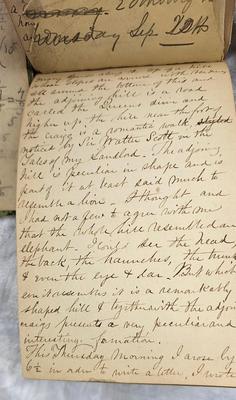 Wednesday Sep. 12th
sea around the bottom of this and
the adjoining hill is a road
called the Queens drive and
higher up the hill near the foot of
the craig is a romantic walk,
noticed by Sir Walter Scott in the
Tales of my Landlord. The adjoining
hill is peculiar in shape and is
part of it at least said much to
resemble a lion. I thought and
had not a few to agree with me
that the whole hill resembled an
elephant. I could see the head,
the back, the haunches, the trunk
& even the eye & ear. But which
ever it resembles it is a remarkably
shaped hill & together with the adjoin
craigs presents a very peculiar and
interesting formation.
This Thursday Morning I arose by
6½ in order to write a letter. I wrote